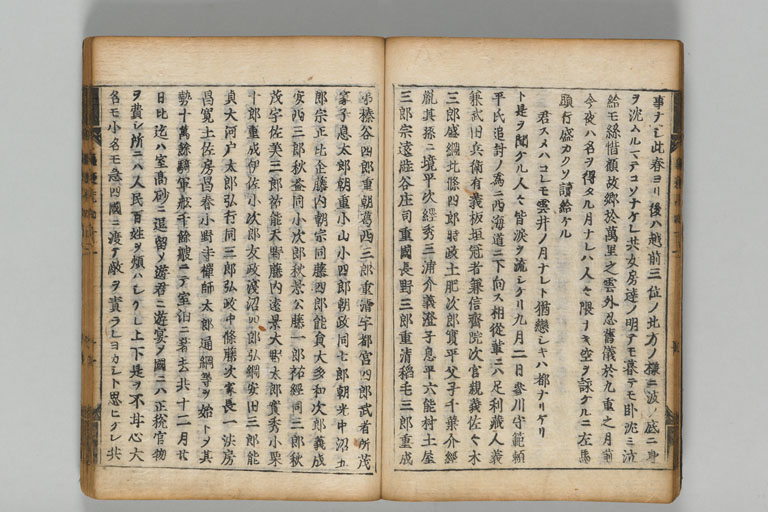 事ナシ此春ヨリ後ハ越前三位ノ北方ノ様ニ波ノ底ニ身
ヲ沈ムルマテコソナケレ共女房達ノ明テモ暮テモ臥沈ミ泣
給モ糸惜顧故郷於万里之雲外忍旧儀於九重之月前
今夜ハ名ヲ得タル月ナレハ人々隈ナキ空ヲ詠ケルニ左馬
頭行盛カクソ読給ケル
君スメハコレモ雲井ノ月ナレト猶恋シキハ都ナリケリ
ト是ヲ聞ケル人々皆涙ヲ流シケリ九月二日参川守範頼
平氏追討ノ為ニ西海道ニ下向ス相従輩ニハ足利蔵人義
兼武田兵衛有義板垣冠者兼信斎院次官親義佐々木
三郎盛綱北條四郎時政土肥次郎実平父子千葉介経
胤其孫ニ境平次経秀三浦介義澄子息平六能村土屋
三郎宗遠渋谷庄司重国長野三郎重清稲毛三郎重成
榛谷四郎重朝葛西三郎重清宇都宮四郎武者所茂
家子息太郎朝重小山小四郎朝政同七郎朝光中沼五
郎宗正比企藤内朝宗同藤四郎能員大多和次郎義成
安西三郎秋益同小次郎秋景公藤一郎祐経同三郎秋
茂宇佐美三郎祐能天野藤内遠景大野太郎実秀小栗
十郎重成伊佐小次郎友政渡沼四郎弘綱安田三郎能
貞大河戸太郎弘行同三郎弘政中條藤次家長一法房
昌寛土佐房昌春小野寺禅師太郎通綱等ヲ始トシテ其
勢十万余騎軍船千余艘ニテ室泊ニ著去共十二月廿
日比迄ハ室高砂ニ逗留シ遊君ニ遊宴シ国ニハ正税官物
ヲ費シ所ニハ人民百姓ヲ煩ハシケレ上下是ヲ不甘心大
名モ小名モ急四国ニ渡テ敵ヲ責ラレヨカシト思ヒケレ共